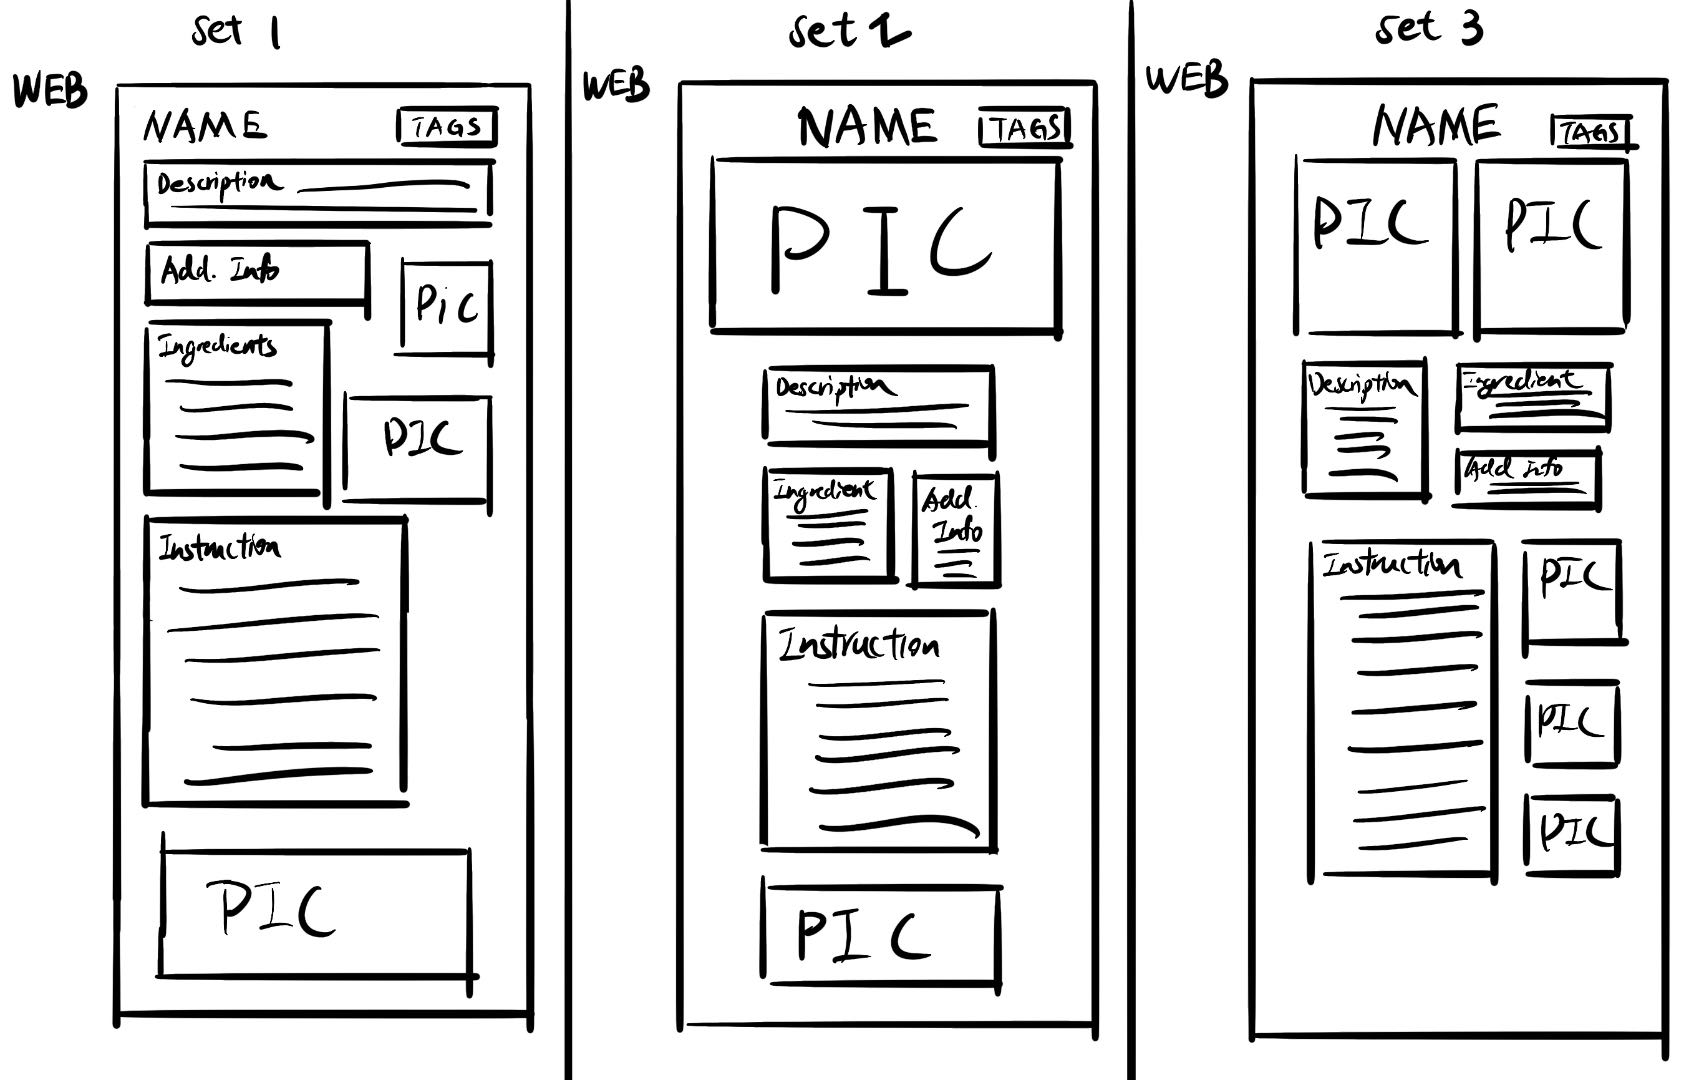 set 1
WEB
NAME
TAGS
Description
Add. Info
Pic
Ingredients
PIC
Instruction
PIC
set 2
WEB
NAME
TAGS
PIC
Description
Ingredient
Add.
Info
Instruction
PIC
set 3
WEB
NAME
TAGS
PIC
PIC
Description
Ingredient
Add Info
Instruction
PIC
PIC
PIC